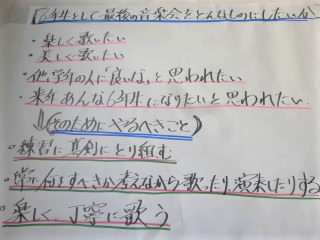 「6年生として最後の音楽会をどんなものにしたいか」
・楽しく歌いたい
・美しく歌いたい
・他学年の人に「良いな」と思われたい
・来年あんな6年生になりたいと思われたい
(そのためにやるべきこと)
・練習に真剣にとり組む
・常に何をすべきか考えながら歌ったり、演奏したりする
・楽しく、丁寧に歌う